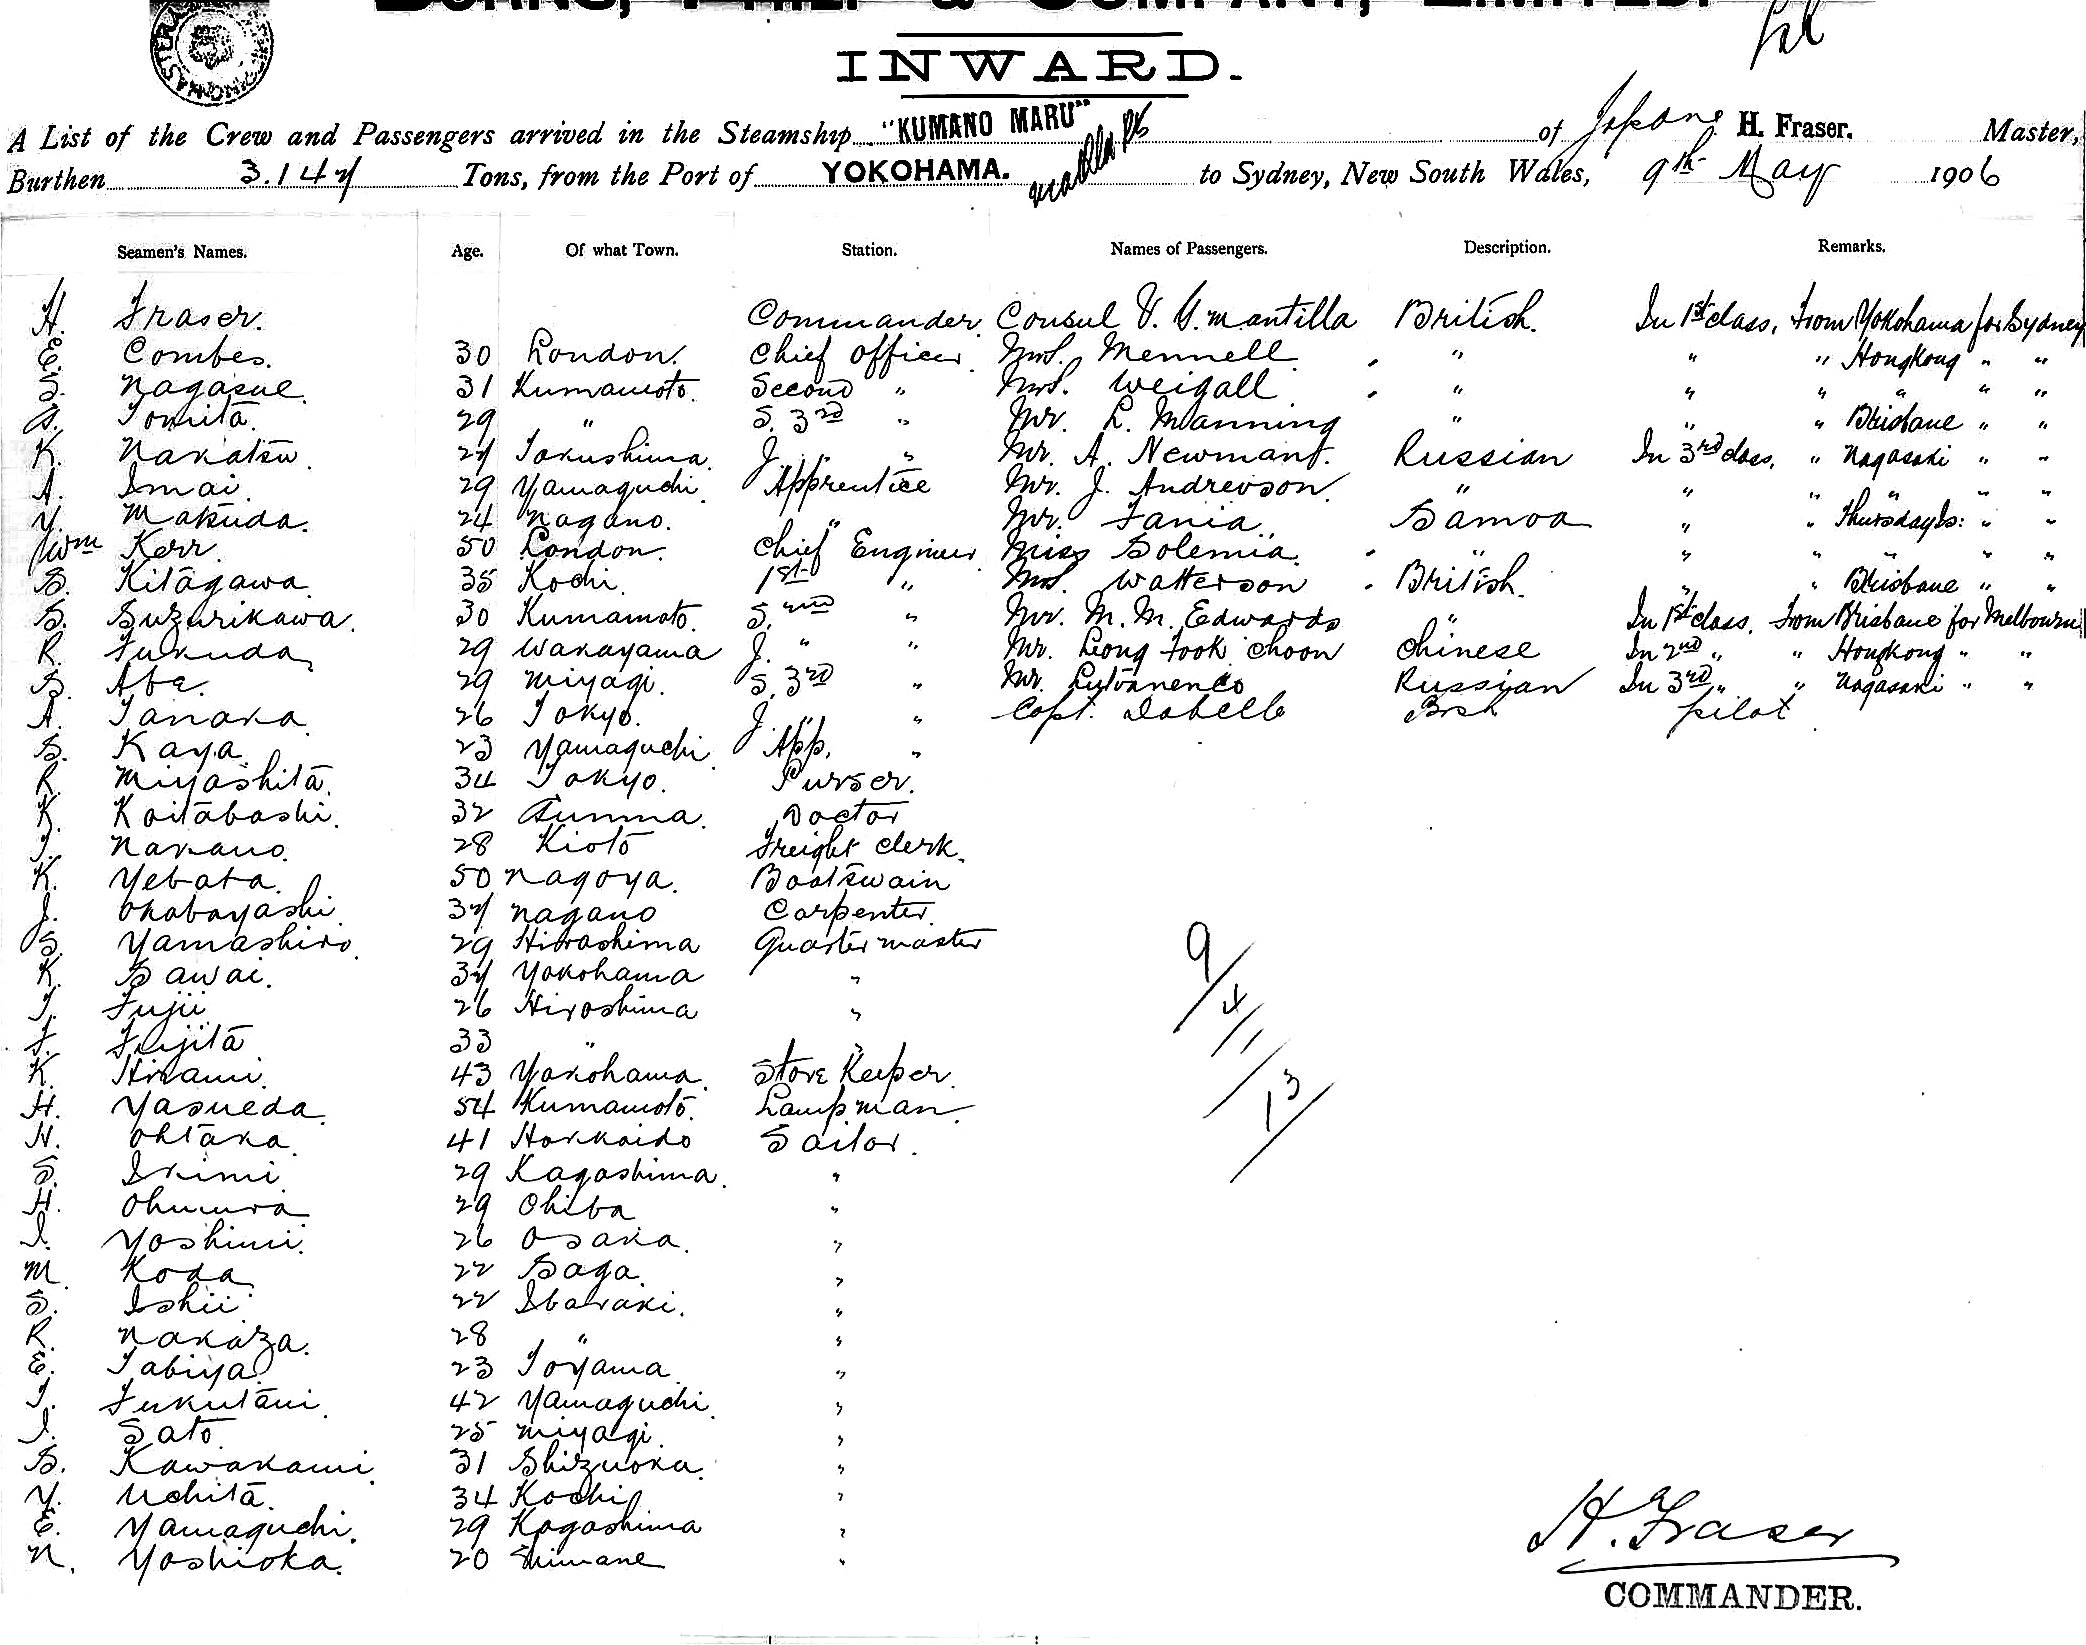 BURNS, PHILP & COMPANY, LIMITED.
INWARD.
A List of the Crew and Passengers arrived in the Steamship "KUMANO MARU" of Japan H. Fraser. Master,
Burthen 3.147 Tons, from the Port of YOKOHAMA. to Sydney, New South Wales, 9th May 1906
Seamen's Names. Age. Of what Town. Station. Names of Passengers. Description. Remarks.
H. Fraser. Commander. Consul V. G. Mantilla British. In 1st class, From Yokohama for Sydney
E. Combes. 30 London. Chief Officer Mrs. Mennell " " " Hongkong " "
S. Nagasue. 31 Kumamoto. Second " Mrs. Weigall " " " " " "
A. Tomita. 29 " S. 3rd " Mr. L. Manning " " " Brisbane " "
K. Nakatsu. 27 Tokushima. J. " " Mr. A. Newmant. Russian In 3rd class, " Nagasaki " "
A. Imai. 29 Yamaguchi. Apprentice Mr. J. Andrewson. " " " " " "
Y. Makuda. 24 Nagano. " Mr. Fania. Samoa " " Thursday Is: " "
Wm Kerr. 50 London. Chief Engineer Miss Solemia. " " " " " "
S. Kitagawa. 35 Kochi. 1st " Mrs. Watterson British. " " Brisbane " "
S. Suzurikawa. 30 Kumamoto. S. 2nd " Mr. M. M. Edwards " In 1st class. From Brisbane for Melbourne
R. Fukuda. 29 Wakayama J. " " Mr. Leong Fook Choon Chinese In 2nd " " Hongkong " "
S. Abe. 29 Miyagi. S. 3rd " Mr. Lutvanenco Russian In 3rd " " Nagasaki " "
A. Tanaka 26 Tokyo. J. " " Capt. Brsh pilot
S. Kaya. 23 Yamaguchi App. "
R. Miyashita. 34 Tokyo. Purser.
K. Koitabashi. 32 Gunma. Doctor
T. Nakano. 28 Kioto Freight Clerk.
K. Yebata. 50 Nagoya. Boatswain
J. Okabayashi 37 Nagano Carpenter.
S. Yamashiro. 29 Hiroshima Quartermaster
K. Sawai. 37 Yokohama "
T. Fujii 26 Hiroshima "
F. Fujita 33 " "
K. Hirami. 43 Yokohama. Store Keeper.
H. Yasueda. 54 Kumamoto. Lampman.
N. Ohtaka 41 Hokkaido Sailor.
S. Ikimi 29 Kagoshima. "
H. Ohmura 29 Chiba "
I. Yoshimi. 26 Osaka. "
M. Koda 22 Saga. "
S. Ishii 22 Ibaraki. "
R. Nakaza. 28 " "
E. Tabiya 23 Toyama "
T. Fukutani 42 Yamaguchi. "
I. Sato 25 Miyagi. "
S. Kawakami. 31 Shizuoka. "
Y. Uchita. 34 Kochi "
E. Yamaguchi. 29 Kagoshima "
N. Yoshioka. 20 Shimane "
9/4/1/13
H. Fraser
COMMANDER.